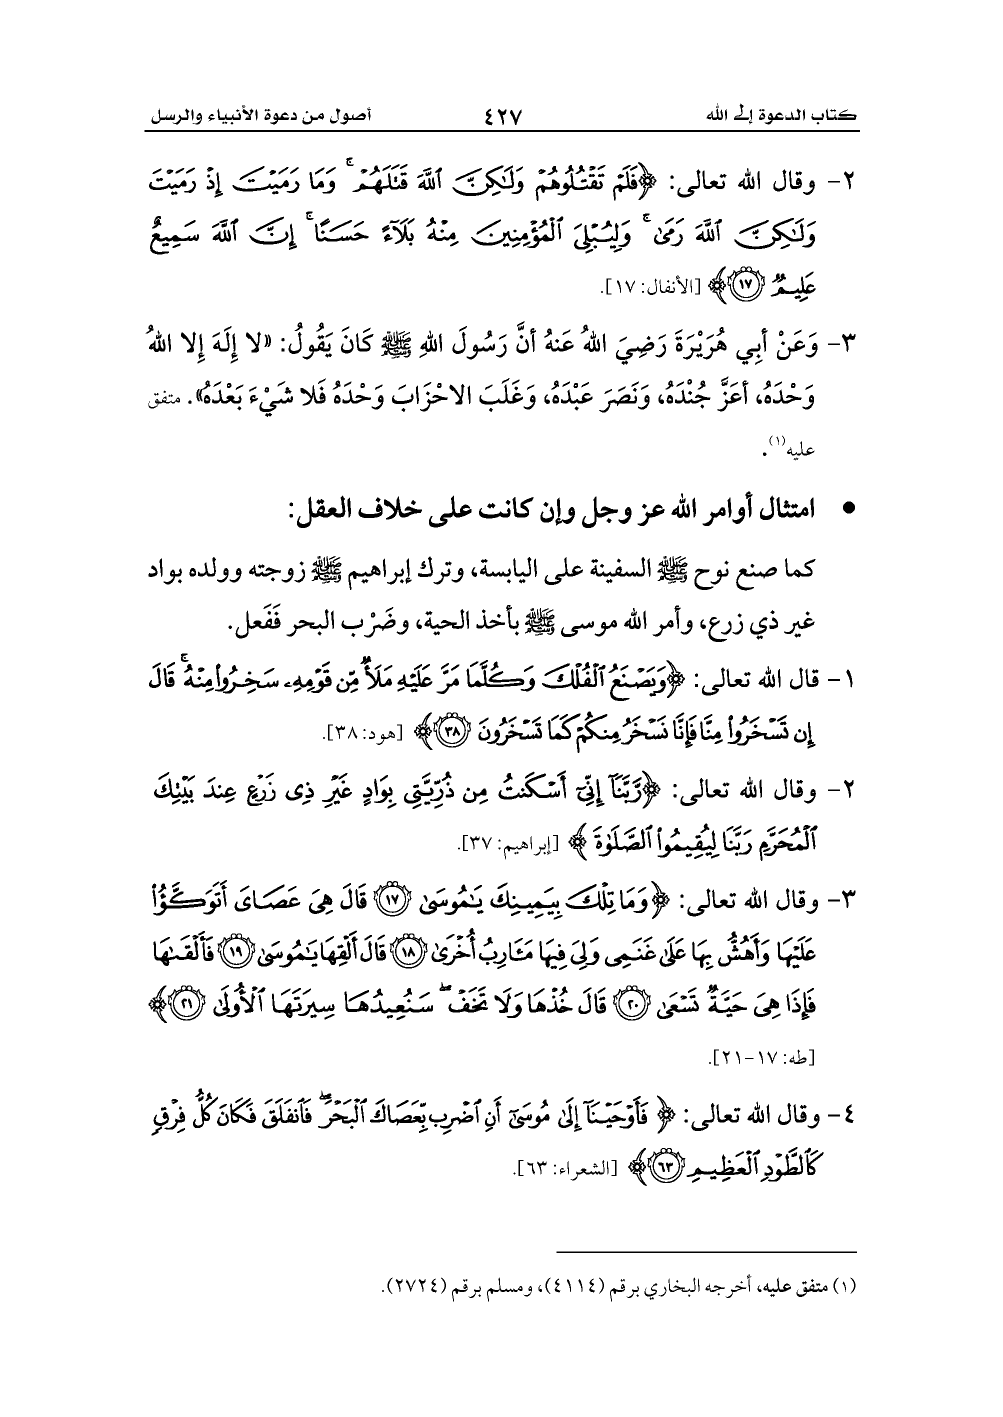 كتاب الدعوة إلى الله ٤٢٧ أصول من دعوة الأنبياء والرسل
٢- وقال الله تعالى: ﴿فَلَمْ تَقْتُلُوهُمْ وَلَٰكِنَّ ٱللَّهَ قَتَلَهُمْ ۚ وَمَا رَمَيْتَ إِذْ رَمَيْتَ
وَلَٰكِنَّ ٱللَّهَ رَمَىٰ ۚ وَلِيُبْلِيَ ٱلْمُؤْمِنِينَ مِنْهُ بَلَآءً حَسَنًا ۚ إِنَّ ٱللَّهَ سَمِيعٌ
عَلِيمٌ ١٧﴾ [الأنفال: ١٧].
٣- وَعَنْ أبِي هُرَيْرَةَ رَضِيَ اللهُ عَنهُ أنَّ رَسُولَ اللهِ ﷺ كَانَ يَقُولُ: «لا إِلَهَ إِلا اللهُ
وَحْدَهُ، أعَزَّ جُنْدَهُ، وَنَصَرَ عَبْدَهُ، وَغَلَبَ الاحْزَابَ وَحْدَهُ فَلا شَيْءَ بَعْدَهُ». متفق
عليه(١).
• امتثال أوامر الله عز وجل وإن كانت على خلاف العقل:
كما صنع نوح ﷺ السفينة على اليابسة، وترك إبراهيم ﷺ زوجته وولده بواد
غير ذي زرع، وأمر الله موسى ﷺ بأخذ الحية، وضَرْب البحر فَفَعل.
١- قال الله تعالى: ﴿وَيَصْنَعُ ٱلْفُلْكَ وَكُلَّمَا مَرَّ عَلَيْهِ مَلَأٌ مِّن قَوْمِهِۦ سَخِرُوا۟ مِنْهُ ۚ قَالَ
إِن تَسْخَرُوا۟ مِنَّا فَإِنَّا نَسْخَرُ مِنكُمْ كَمَا تَسْخَرُونَ ٣٨﴾ [هود: ٣٨].
٢- وقال الله تعالى: ﴿رَّبَّنَآ إِنِّىٓ أَسْكَنتُ مِن ذُرِّيَّتِى بِوَادٍ غَيْرِ ذِى زَرْعٍ عِندَ بَيْتِكَ
ٱلْمُحَرَّمِ رَبَّنَا لِيُقِيمُوا۟ ٱلصَّلَوٰةَ ﴾ [إبراهيم: ٣٧].
٣- وقال الله تعالى: ﴿وَمَا تِلْكَ بِيَمِينِكَ يَٰمُوسَىٰ ١٧ قَالَ هِىَ عَصَاىَ أَتَوَكَّؤُا۟
عَلَيْهَا وَأَهُشُّ بِهَا عَلَىٰ غَنَمِى وَلِىَ فِيهَا مَـَٔارِبُ أُخْرَىٰ ١٨ قَالَ أَلْقِهَا يَٰمُوسَىٰ ١٩ فَأَلْقَىٰهَا
فَإِذَا هِىَ حَيَّةٌ تَسْعَىٰ ٢٠ قَالَ خُذْهَا وَلَا تَخَفْ ۖ سَنُعِيدُهَا سِيرَتَهَا ٱلْأُولَىٰ ٢١﴾
[طه: ١٧-٢١].
٤- وقال الله تعالى: ﴿ فَأَوْحَيْنَآ إِلَىٰ مُوسَىٰٓ أَنِ ٱضْرِب بِّعَصَاكَ ٱلْبَحْرَ ۖ فَٱنفَلَقَ فَكَانَ كُلُّ فِرْقٍ
كَٱلطَّوْدِ ٱلْعَظِيمِ ٦٣﴾ [الشعراء: ٦٣].
(١) متفق عليه، أخرجه البخاري برقم (٤١١٤)، ومسلم برقم (٢٧٢٤).